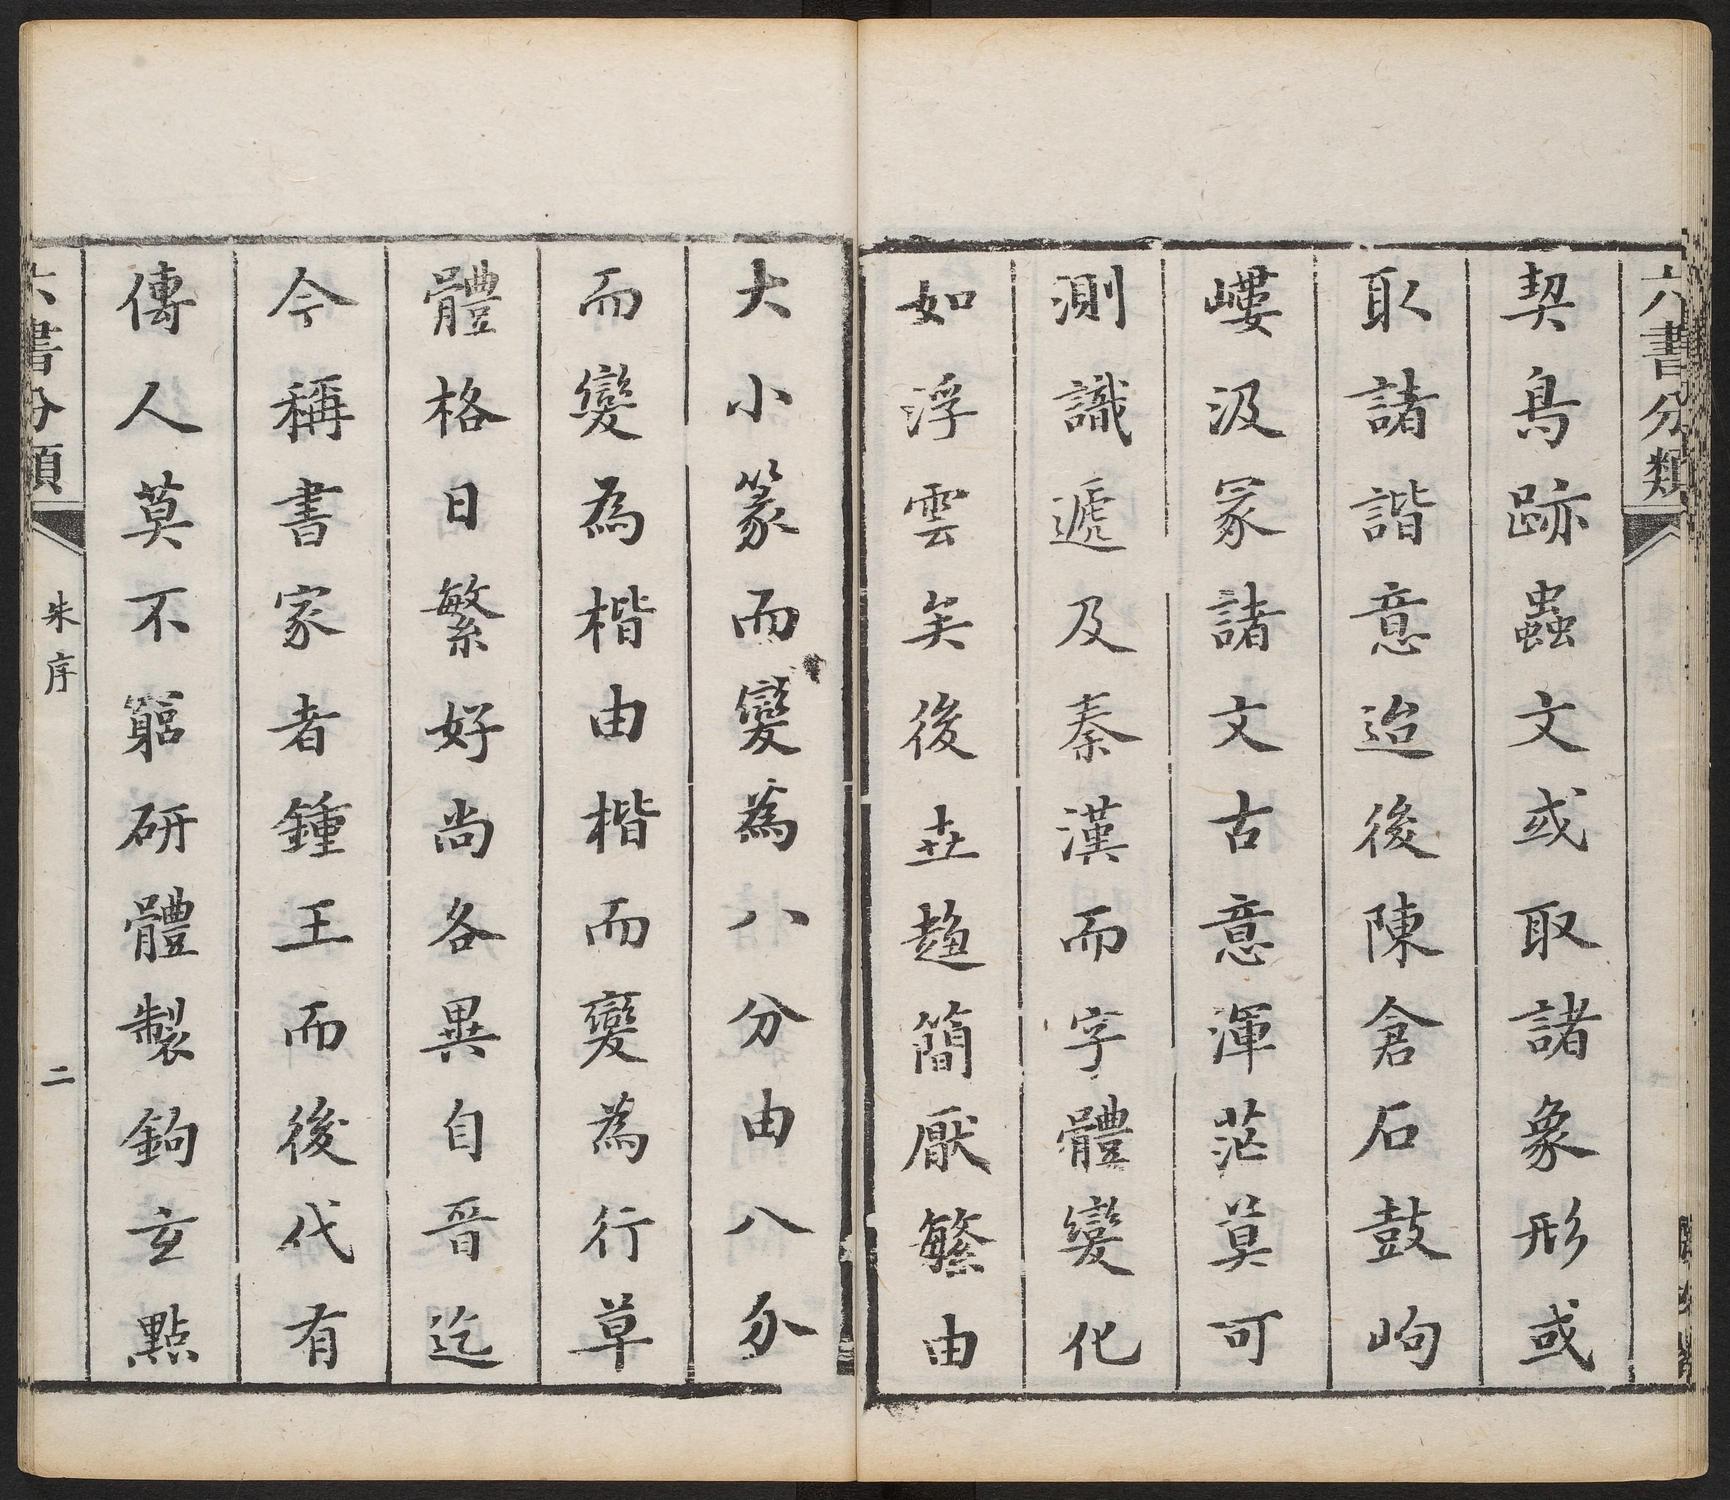 六書分類
契鳥跡蟲文或取諸象形或
取諸諧意迨後陳倉石鼓岣
嶁汲冢諸文古意渾茫莫可
測識遞及秦漢而字體變化
如浮雲矣後世趨簡厭繁由
大小篆而變為八分由八分
而變為楷由楷而變為行草
體格日繁好尚各異自晉迄
今稱書家者鍾王而後代有
傳人莫不窮研體製鉤玄點
六書分類
朱序
二